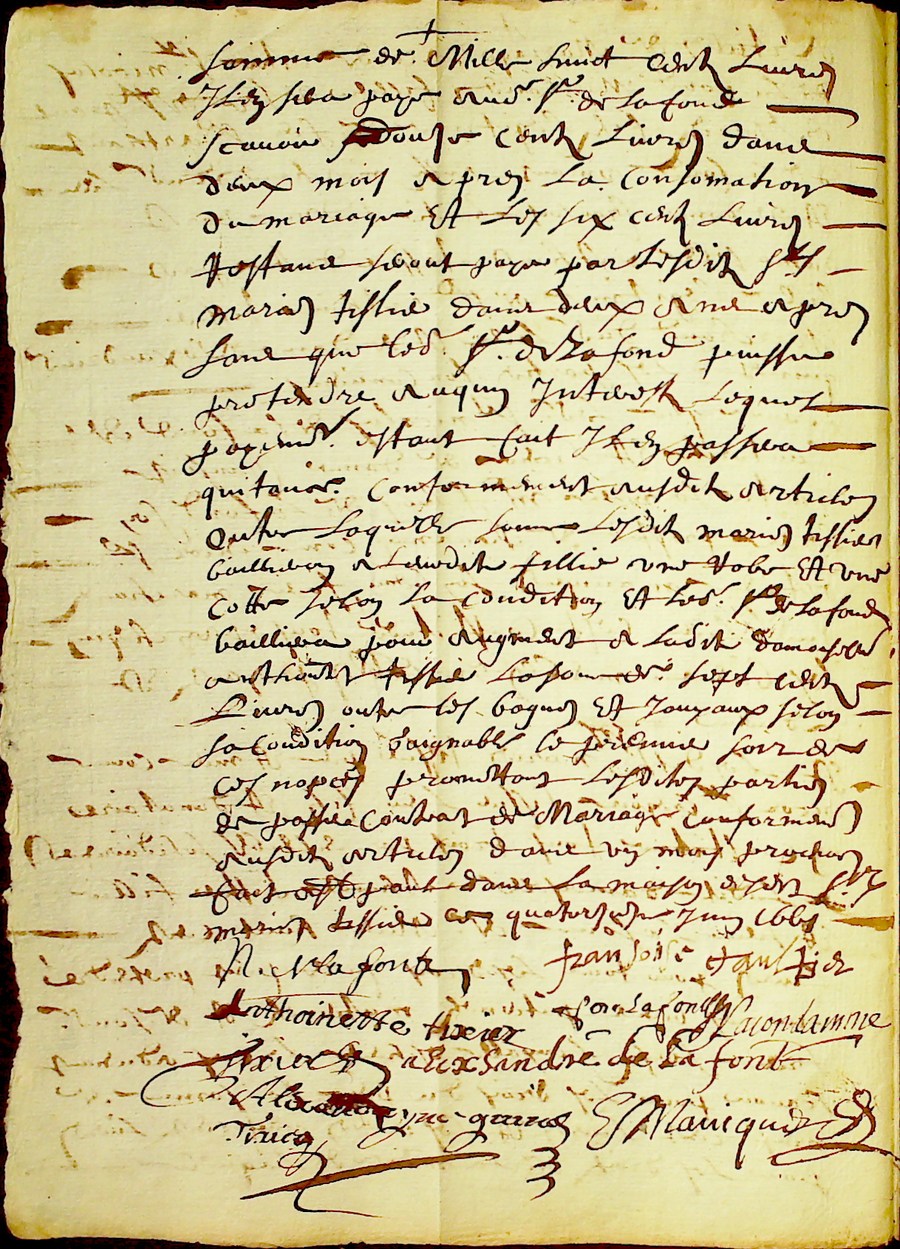 somme de Mille huict cent Livres
Il en sera payé aud. Sr. de Lafond
scavoir douse cent Livres dans
deux mois apres la Consomation
du mariage Et Les six cent Livres
Restant seront paye par Lesdit Srs
maries tissier dans deux ans apres
sans que led. Sr. de Lafond puisse
pretendre auqun Interest Lequel
payemt. estant fait Il en passera
quitance. Conformement ausdit articles
outre Laquelle somme Lesdit maries tissier
baillieron a leurdit fillie une Robe Et une
Cotte selon La Condition Et led. Sr. de Lafond
bailliera pour augment a Ladit damoiselle
anthoinette tissier La some de sept cent
Livres outre les bagues Et Jouyaux selon
sa Condition gaignable le premier soir de
ces nopces promettant Lesdites parties
de passer Contrat de Mariage Conformemt
ausdit articles dans un mois prochain
fait dans La maison desdit Srs
maries tissier ce quatorsiesme Juin
De la font françoise gaultier
Anthoinette tixier Lacondamine
Tixier alexsandre de La font
Mauequi